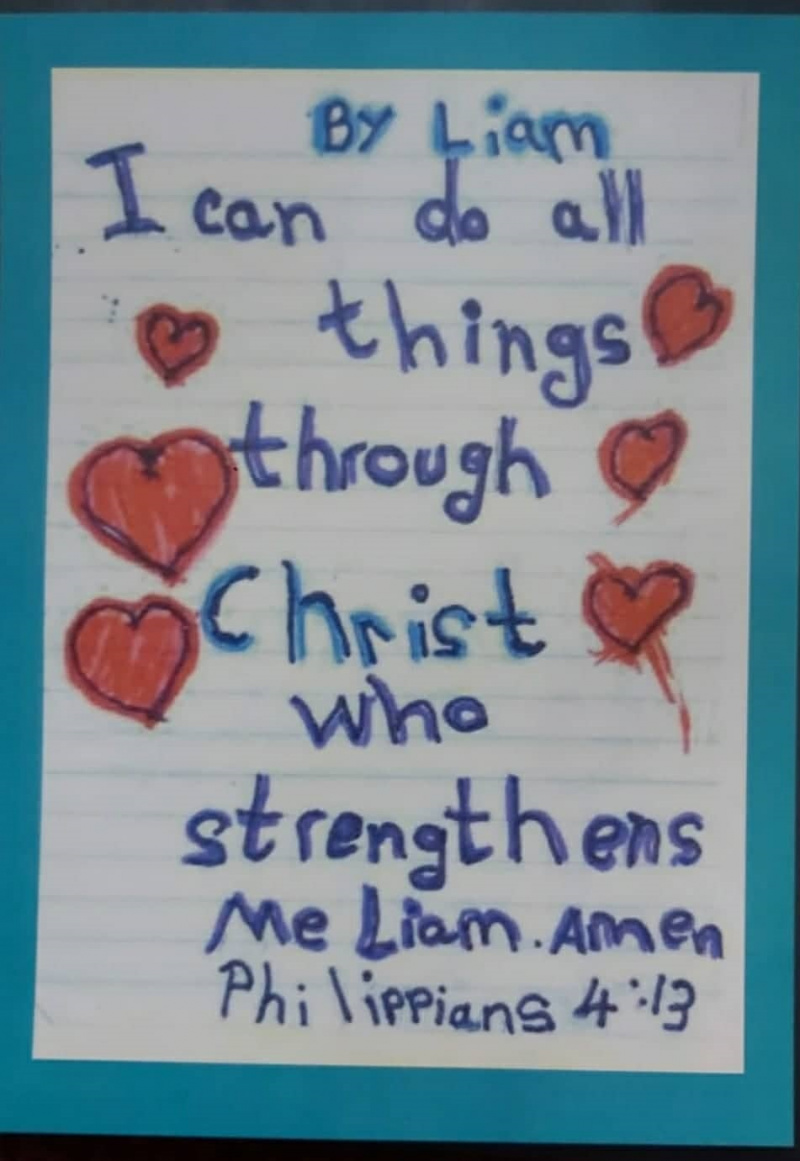 By Liam
I can do all
things
through
Christ
who
strengthens
Me Liam. Amen
Philippians 4:13